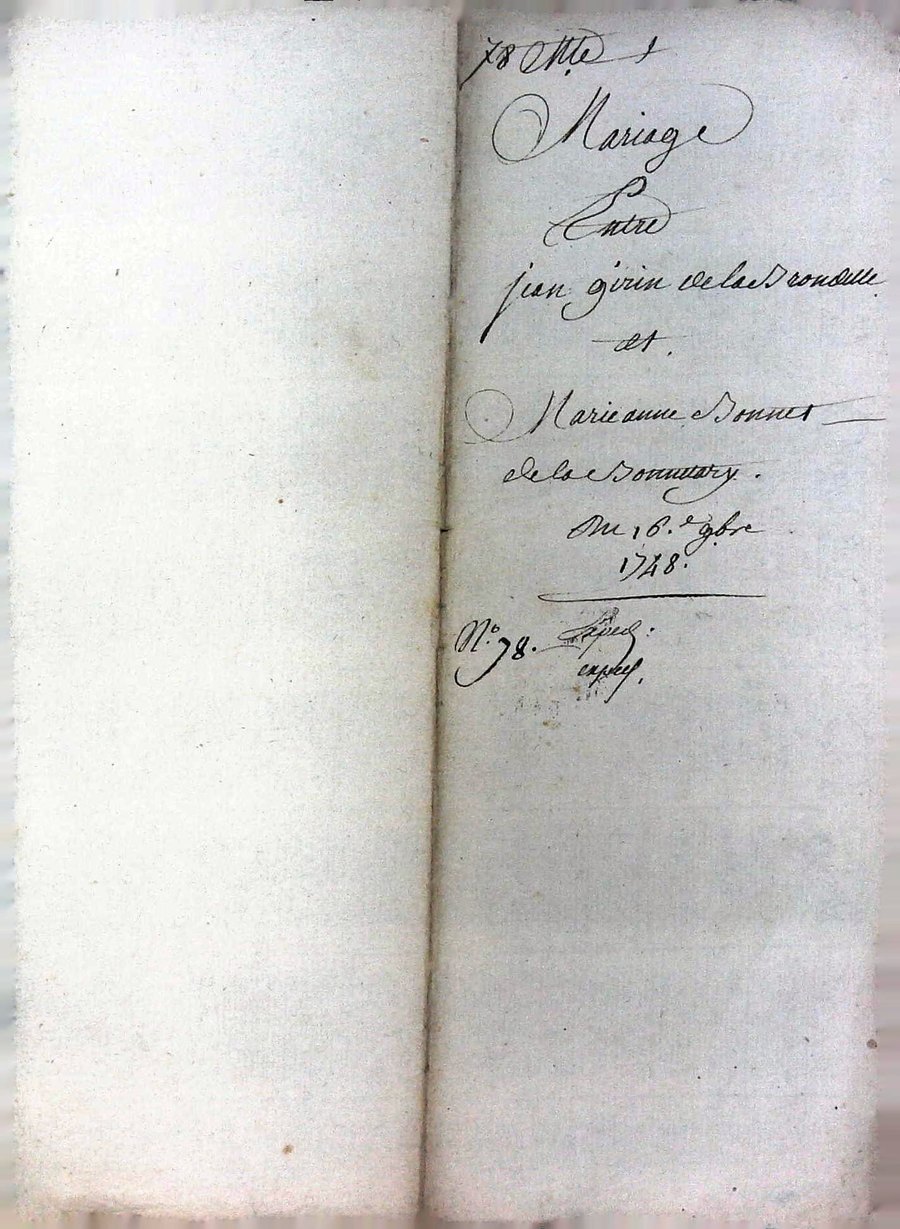 78
Mariage
Entre
jean girin de la Brondelle
et.
Marieanne Bonnet
de la Bonnuary.
Du 16.e 9bre
1748.
No. 78. Exped:
exped.